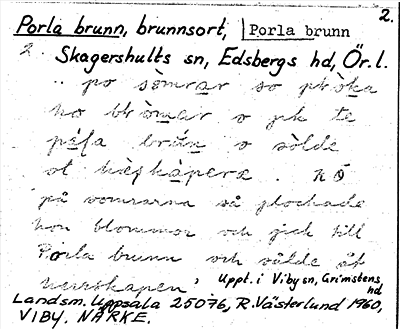 2.
Porla brunn, brunnsort, Porla brunn
2. Skagershults sn, Edsbergs hd, Ör. l.
.. po sòmrar so plòka
ho blòmar o jik te
påla brun o sòlde
ot hæskàpera. Kö
på somrarna så plockade
hon blommor och gick till
Porla brunn och sålde åt
herrskapen, Uppt. i Viby sn, Grimstens hd
Landsm. Uppsala 25076, R. Västerlund 1960,
VIBY. NÄRKE.